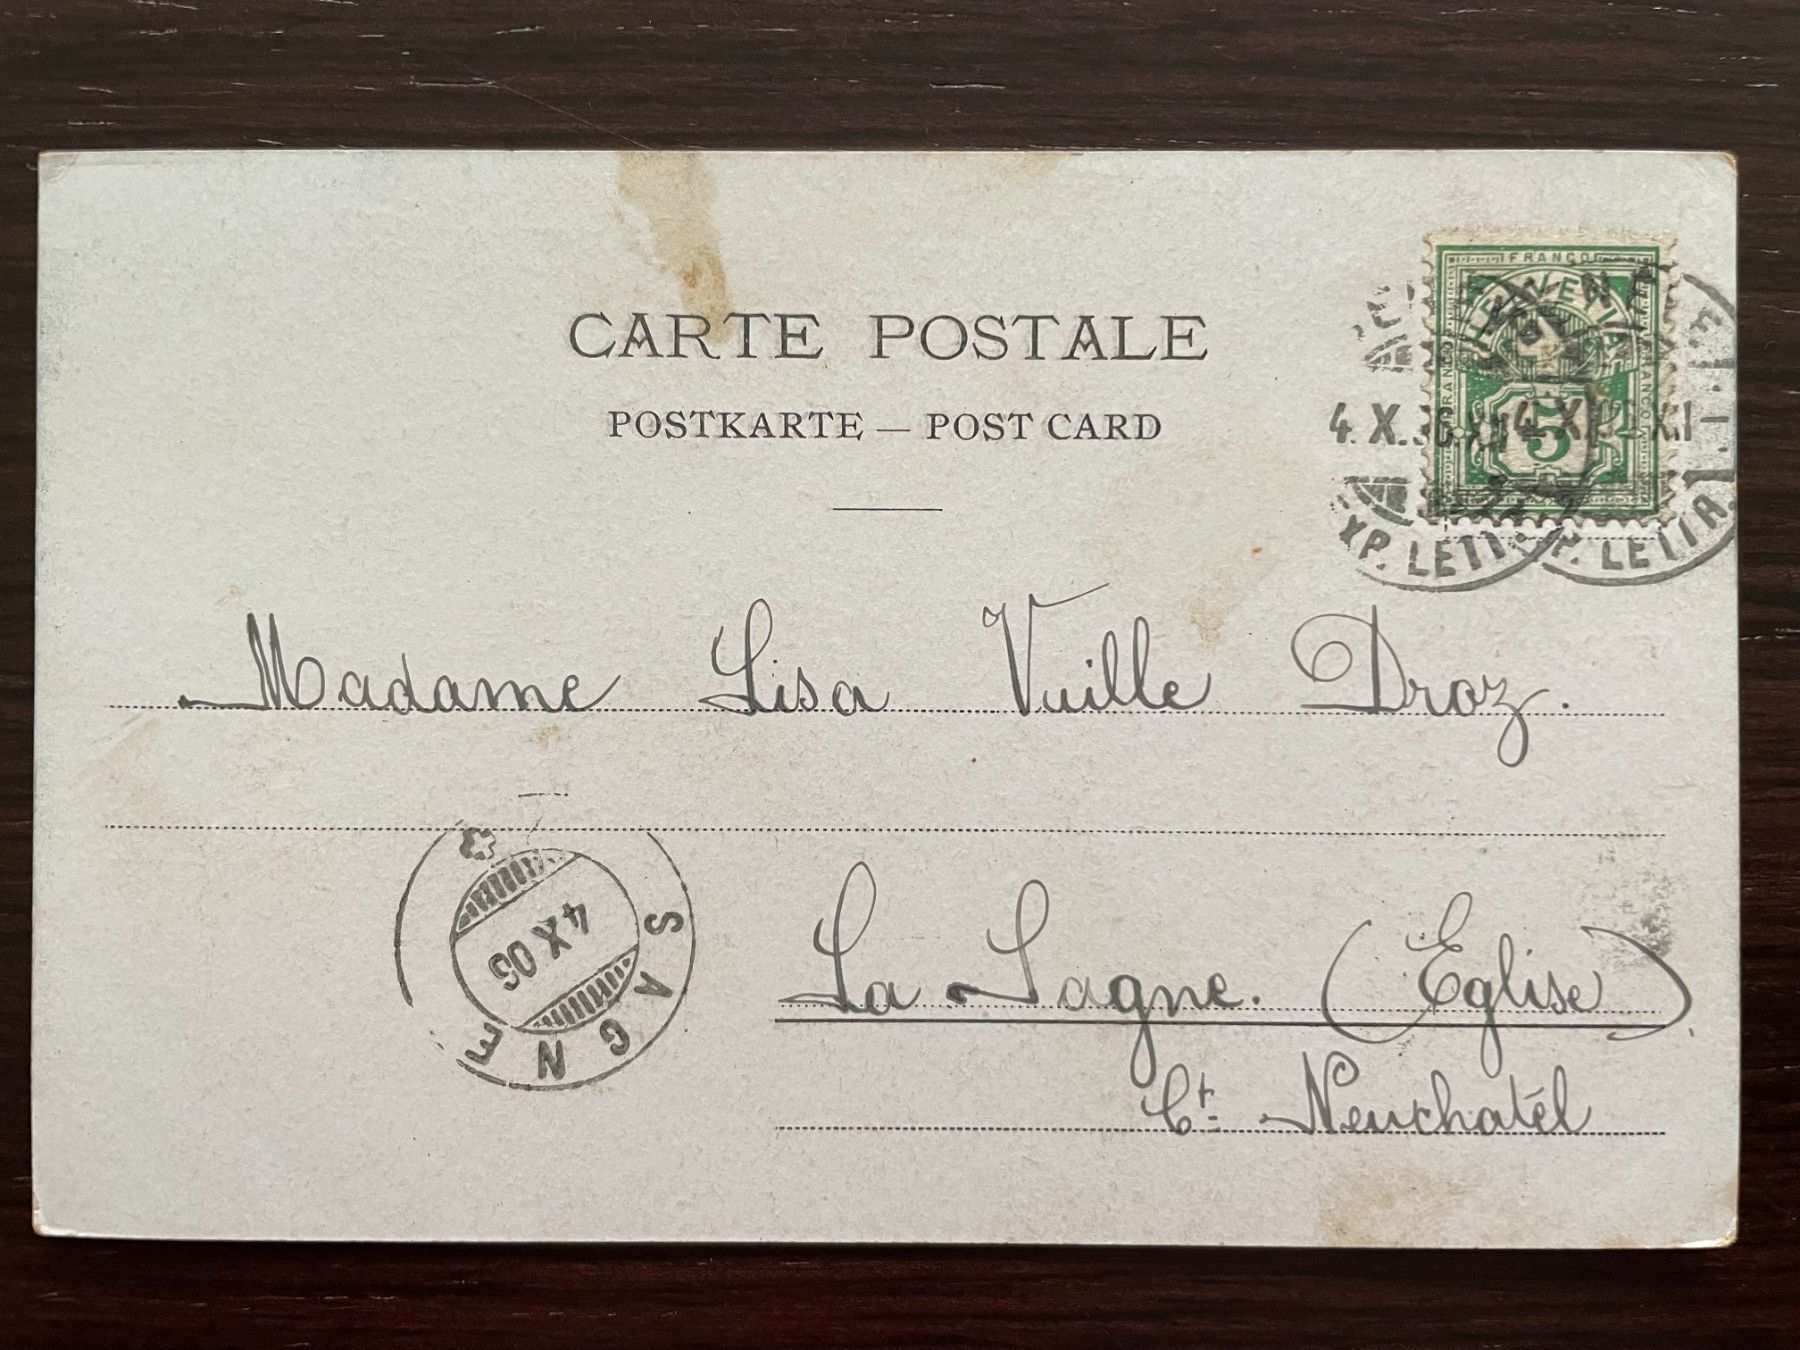 CARTE POSTALE
POSTKARTE — POST CARD
FRANCO
HELVETIA
FRANCO
FRANCO
5
4. X.
XP. LETTR.
4. X
XII
P. LETTR.
Madame Lisa Vuille Droz.
SAGNE
4 X 06
La Sagne. (Eglise)
Ct. Neuchatél